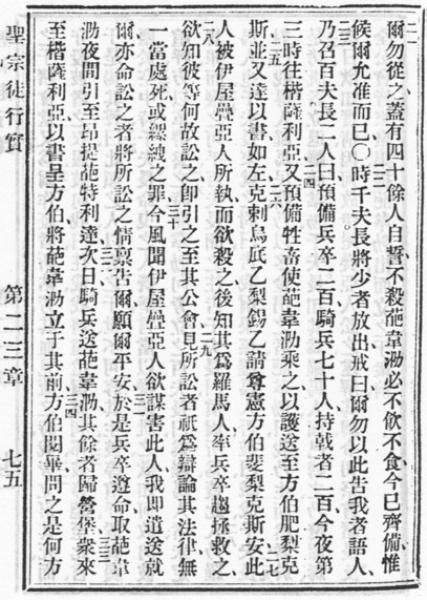 二一
爾勿從之、蓋有四十餘人自誓不殺葩韋泐必不飲不食今已齊備惟
二二
候爾允准而已〇時千夫長將少者放出戒曰爾勿以此告我者語人、
二三
乃召百夫長二人曰預備兵卒二百騎兵七十人持戟者二百今夜第
二四
三時往楷薩利亞又預備牲畜使葩韋泐乘之以護送至方伯肥梨克
二五 二六 二七
斯並又達以書如左克剌烏底乙梨錫乙請尊憲方伯斐梨克斯安此
人被伊屋疊亞人所執而欲殺之後知其爲羅馬人率兵卒趨拯救之、
二八 二九
欲知彼等何故訟之卽引之至其公會見所訟者祇爲辯論其法律無
三十
一當處死或縲絏之罪今風聞伊屋疊亞人欲謀害此人我卽遣送就
三一
爾亦命訟之者將所訟之情稟告爾願爾平安於是兵卒遵命取葩韋
三二 三三
泐夜間引至昂提葩特利達次日騎兵送葩韋泐其餘者歸營堡衆來
三四
至楷薩利亞以書呈方伯將葩韋泐立于其前方伯閱畢問之是何方
聖宗徒行實 第二三章 七五